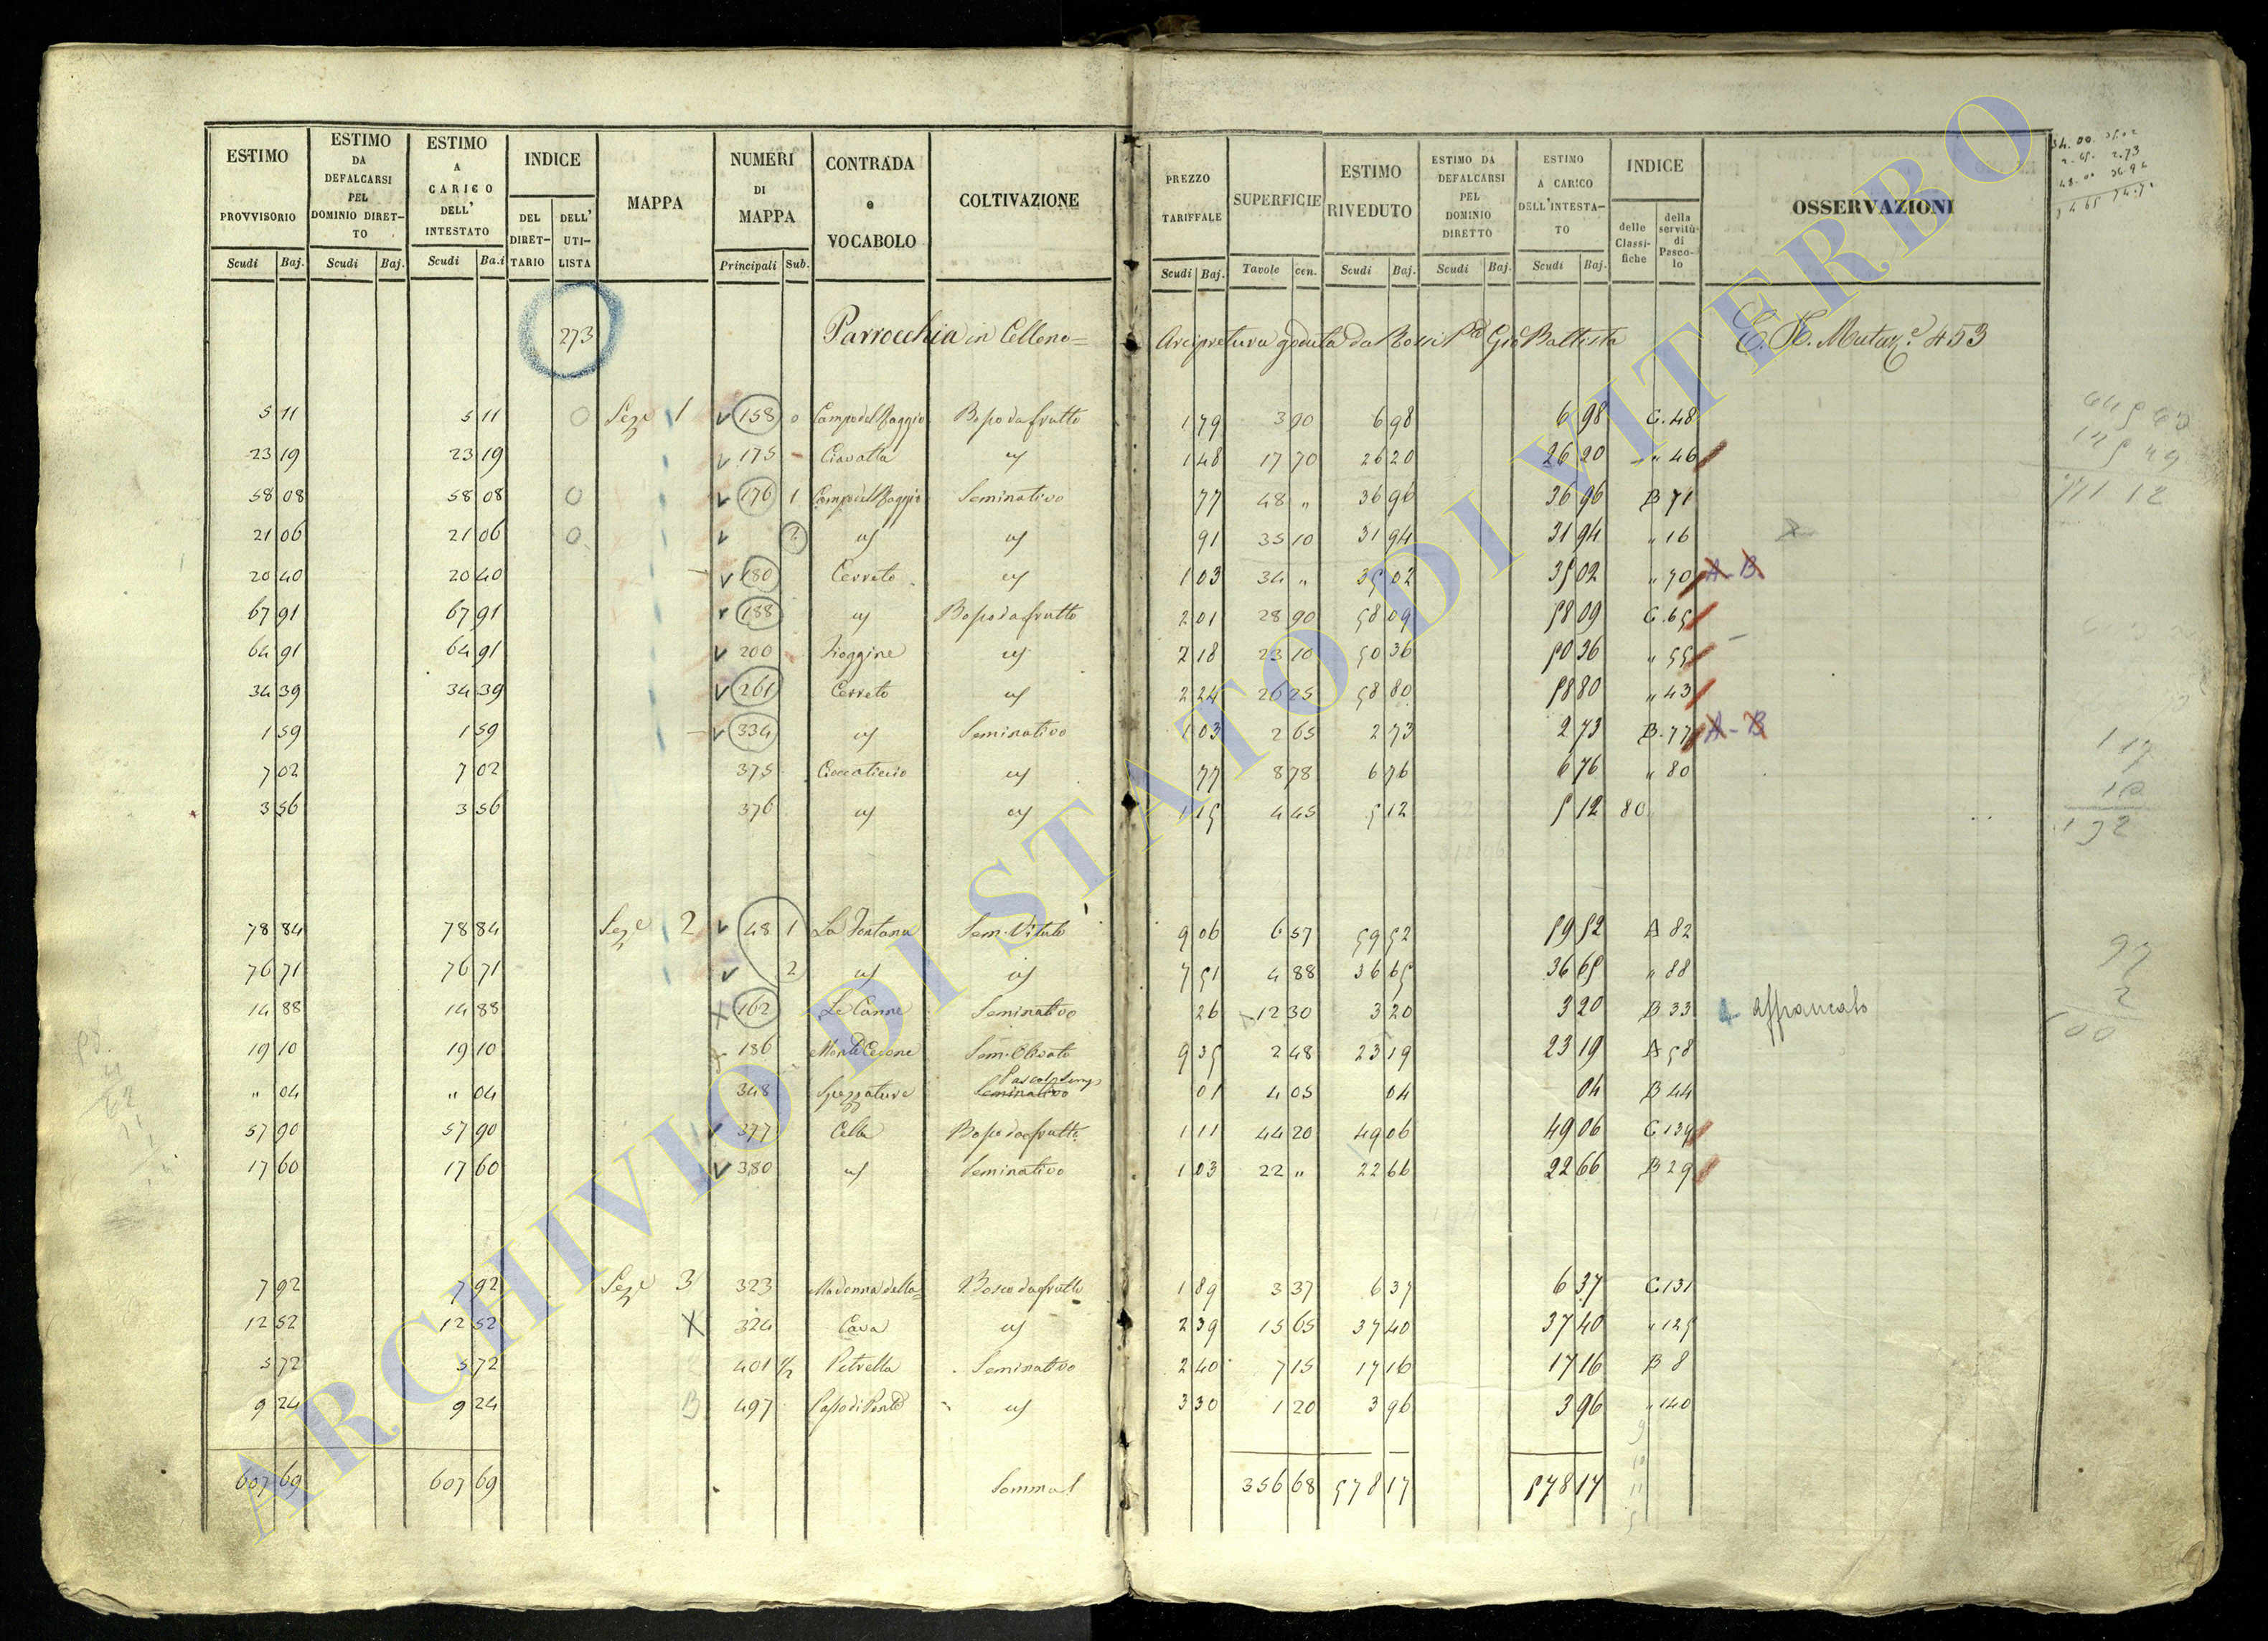 ESTIMO PROVVISORIO | ESTIMO DA DEFALCARSI PEL DOMINIO DIRET-TO | ESTIMO A CARICO DELL' INTESTATO | INDICE | MAPPA | NUMERI DI MAPPA | CONTRADA e VOCABOLO | COLTIVAZIONE | PREZZO TARIFFALE | SUPERFICIE | ESTIMO RIVEDUTO | ESTIMO DA DEFALCARSI PEL DOMINIO DIRETTO | ESTIMO A CARICO DELL'INTESTA-TO | INDICE | OSSERVAZIONI
DEL DIRET-TARIO | DELL' UTI-LISTA | delle Classi-fiche | della servitù di Pasco-lo
Scudi Baj. | Scudi Baj. | Scudi Ba.i | Principali Sub. | Scudi Baj. | Tavole cen. | Scudi Baj. | Scudi Baj. | Scudi Baj.
273 Parrocchia in Celleno= Arcipretura goduta da Rossi Gio Battista 453
5 11 | 5 11 | Sez.e 1 | 158 0 | Campo del Poggio | da frutto | 1 79 | 3 90 | 6 98 | 6 98 | C. 48
23 19 | 23 19 | 175 | Ciavatta | 1 48 | 17 70 | 26 20 | 26 20 | " 46
58 08 | 58 08 | 176 1 | Campo del Poggio | Seminativo | 77 | 48 " | 36 96 | 36 96 | B 71
21 06 | 21 06 | 2 | 91 | 35 10 | 31 94 | 31 94 | " 16
20 40 | 20 40 | 180 | Cerreto | 1 03 | 34 " | 35 02 | 35 02 | " 70 A - B
67 91 | 67 91 | 188 | da frutto | 2 01 | 28 90 | 58 09 | 58 09 | C. 65
64 91 | 64 91 | 200 | 2 18 | 23 10 | 50 36 | 50 36 | " 55
34 39 | 34 39 | 261 | Cerreto | 2 24 | 26 25 | 58 80 | 58 80 | " 43
1 59 | 1 59 | 334 | Seminativo | 1 03 | 2 65 | 2 73 | 2 73 | B. 77 A - B
7 02 | 7 02 | 375 | 77 | 8 78 | 6 76 | 6 76 | " 80
3 56 | 3 56 | 376 | 1 15 | 4 45 | 5 12 | 5 12 | 80
78 84 | 78 84 | Sez.e 2 | 48 1 | La Fontana | Sem. Vitato | 9 06 | 6 57 | 59 52 | 59 52 | A 82
76 71 | 76 71 | 2 | 7 51 | 4 88 | 36 65 | 36 65 | " 88
14 88 | 14 88 | 162 | Le Canne | Seminativo | 26 | 12 30 | 3 20 | 3 20 | B 33 | affrancato
19 10 | 19 10 | 186 | Sem. Olivato | 9 35 | 2 48 | 23 19 | 23 19 | A 58
" 04 | " 04 | 348 | Spezzature | Seminativo | 01 | 4 05 | 04 | 04 | B 44
57 90 | 57 90 | 377 | Cella | da frutto | 1 11 | 44 20 | 49 06 | 49 06 | C 139
17 60 | 17 60 | 380 | Seminativo | 1 03 | 22 " | 22 66 | 22 66 | B 29
7 92 | 7 92 | Sez.e 3 | 323 | Madonna della= | Bosco da frutto | 1 89 | 3 37 | 6 37 | 6 37 | C 131
12 52 | 12 52 | X | 324 | Cava | 2 39 | 15 65 | 37 40 | 37 40 | " 125
5 72 | 5 72 | 401 1/2 | Petrella | Seminativo | 2 40 | 7 15 | 17 16 | 17 16 | B 8
9 24 | 9 24 | B | 497 | 3 30 | 1 20 | 3 96 | 3 96 | " 140
607 69 | 607 69 | Somma | 356 68 | 578 17 | 578 17
ARCHIVIO DI STATO DI VITERBO